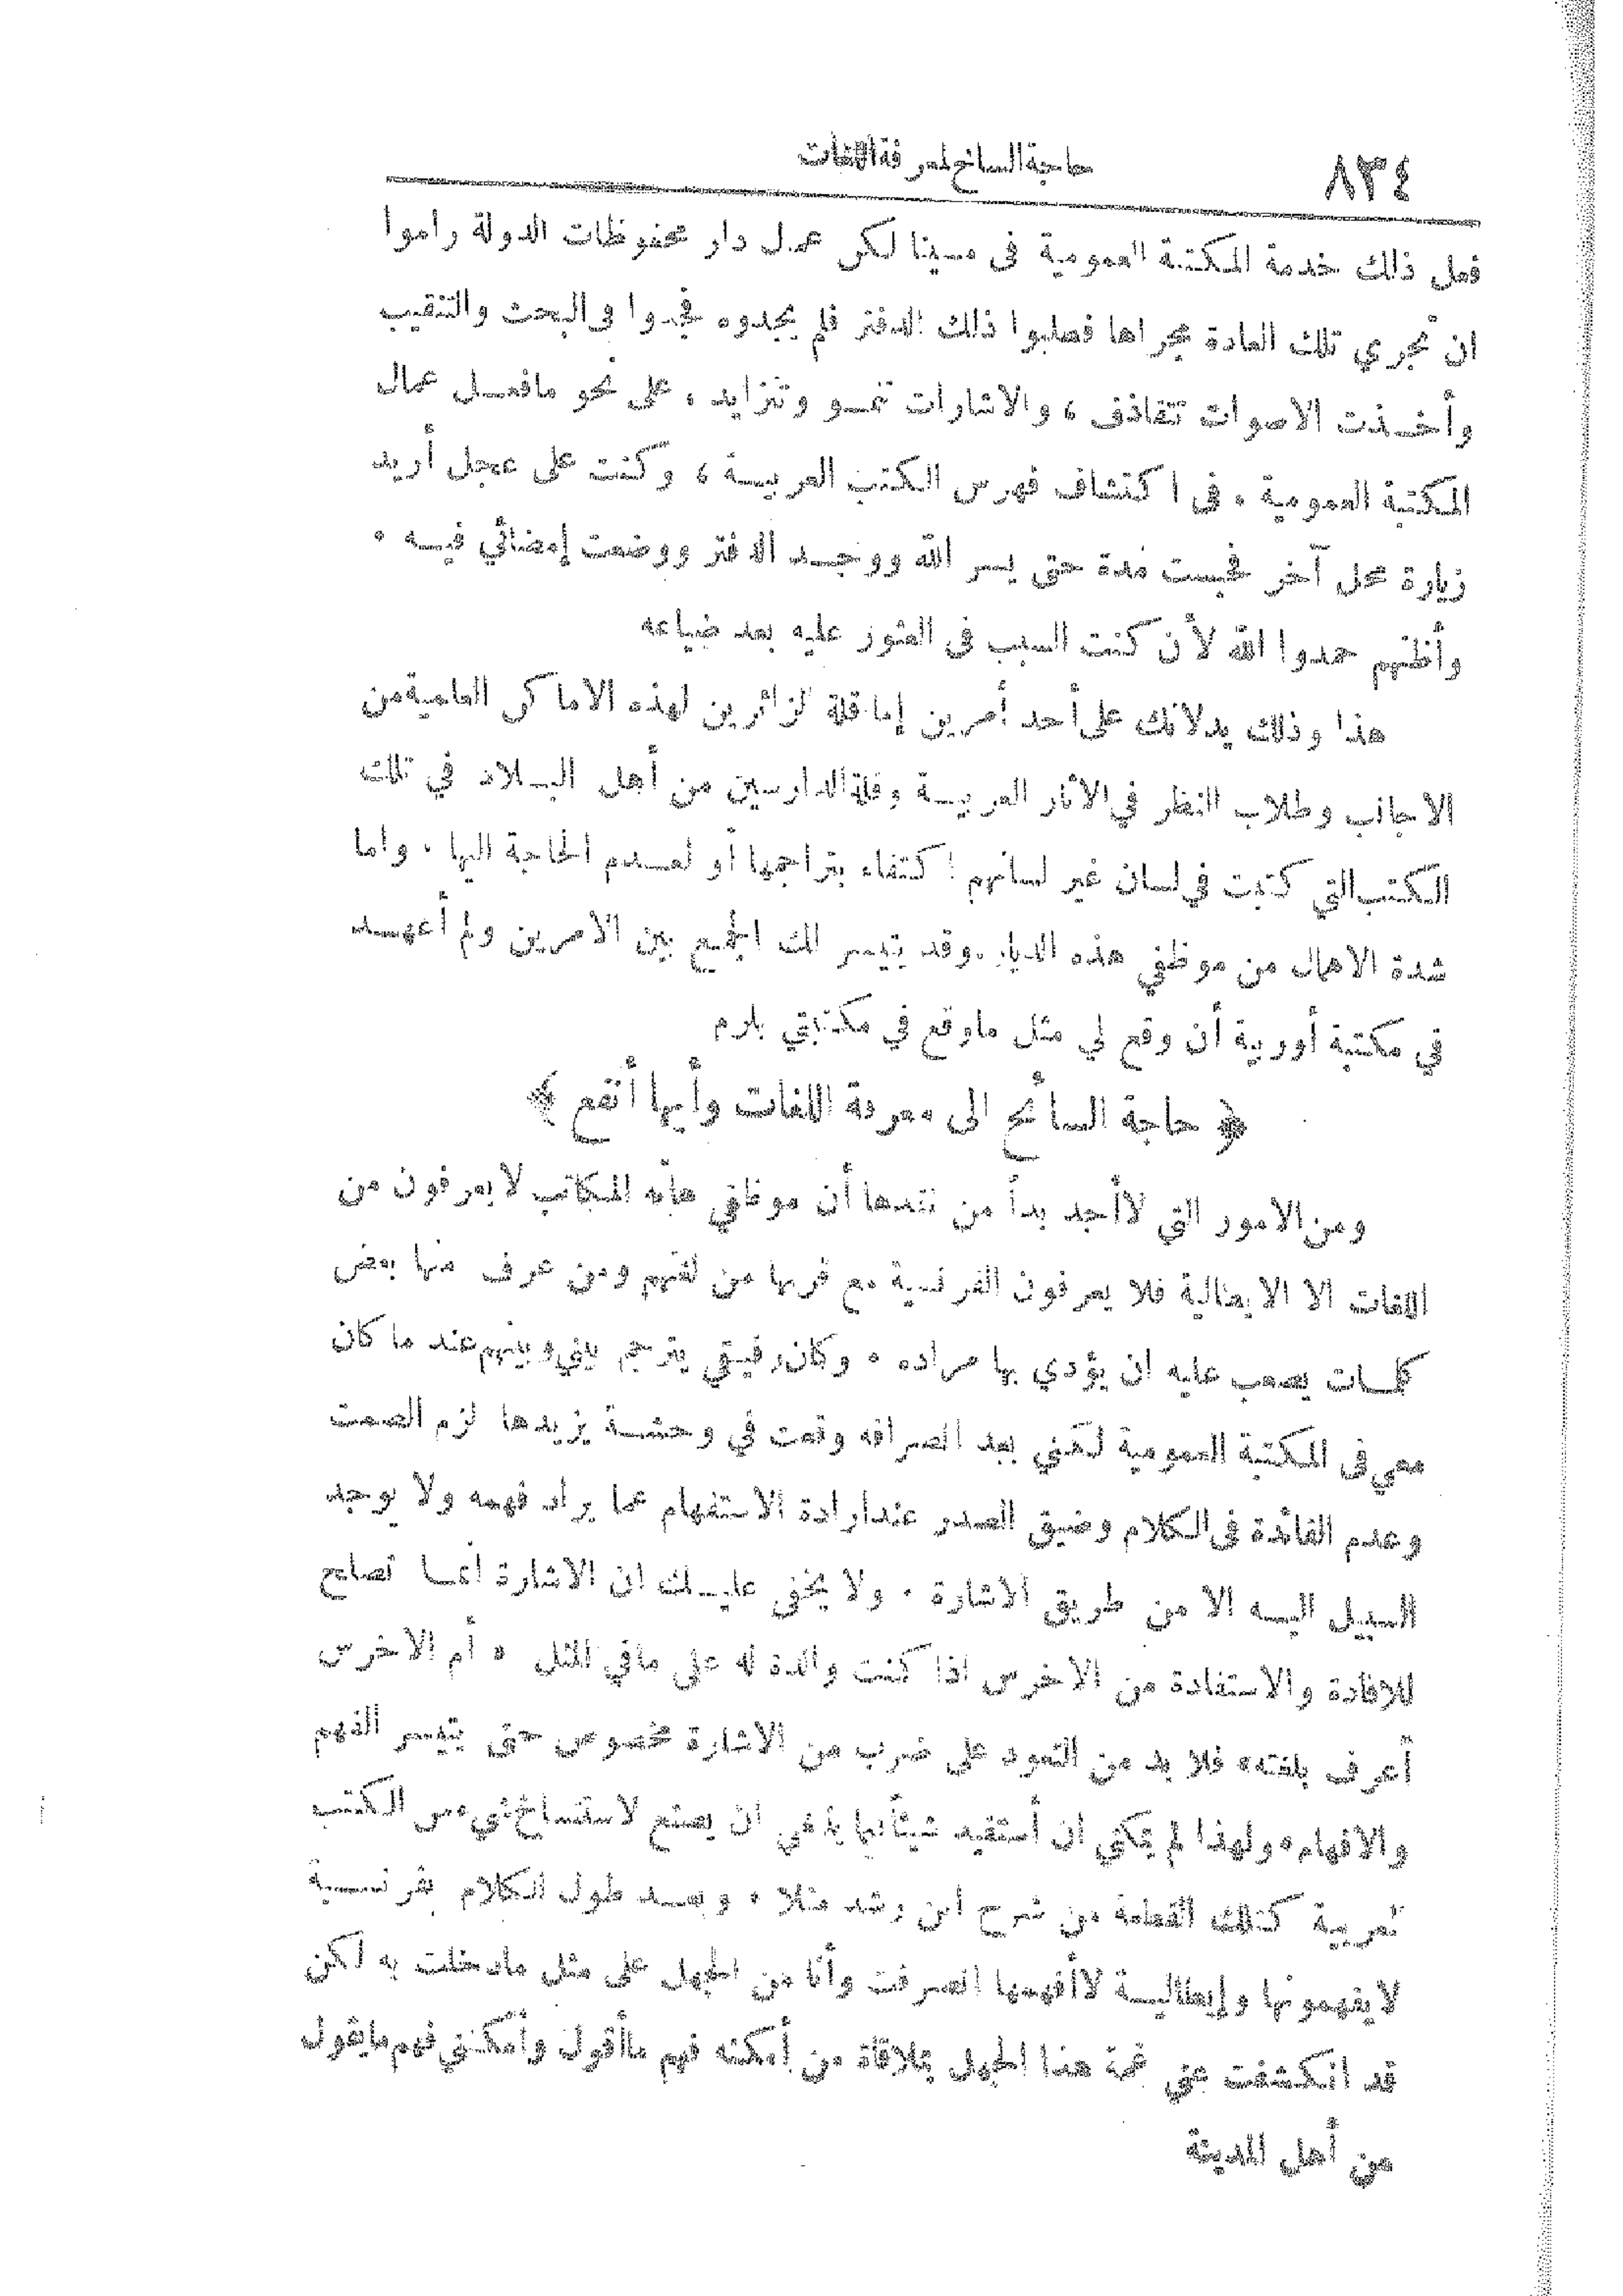 ٨٣٤
حاجة السائح لمعرفة اللغات
فعل ذلك خدمة المكتبة العمومية فى مسينا لكن عمل دار محفوظات الدولة راموا
ان تجري تلك العادة مجراها فطلبوا ذلك الدفتر فلم يجدوه فجدوا فى البحث والتنقيب
وأخذت الاصوات تتقاذف ، والاشارات تنمو وتتزايد ، على نحو مافعل عمال
المكتبة العمومية . فى اكتشاف فهرس الكتب العربية ، وكنت على عجل أريد
زيارة محل آخر فحبست مدة حتى يسر الله ووجد الدفتر ووضعت إمضائي فيه .
وأظنهم حمدوا الله لأن كنت السبب فى العثور عليه بعد ضياعه
هذا وذلك يدلانك على أحد أمرين إما قلة الزائرين لهذه الاماكن العلمية من
الاجانب وطلاب النظر في الآثار العربية وقلة الدارسين من أهل البلاد في تلك
الكتب التي كتبت في لسان غير لسانهم اكتفاء بتراجمها أو لعدم الحاجة اليها . واما
شدة الاهمال من موظفي هذه الديار . وقد يتيسر لك الجمع بين الامرين ولم أعهد
في مكتبة أوربية أن وقع لي مثل ماوقع في مكتبتي بلرم
﴿ حاجة السائح الى معرفة اللغات وأيها أنفع ﴾
ومن الامور التي لاأجد بداً من نقدها أن موظفي هذه المكاتب لا يعرفون من
اللغات الا الايطالية فلا يعرفون الفرنسية مع قربها من لغتهم ومن عرف منها بعض
كلمات يصعب عليه ان يؤدي بها مراده . وكان رفيقي يترجم بيني وبينهم عند ما كان
معي فى المكتبة العمومية لكنني بعد انصرافه وقعت في وحشة يزيدها لزم الصمت
وعدم الفائدة فى الكلام وضيق الصدر عند ارادة الاستفهام عما يراد فهمه ولا يوجد
السبيل اليه الا من طريق الاشارة . ولا يخفى عليك ان الاشارة انما تصلح
للافادة والاستفادة من الاخرس اذا كنت والدة له على مافي المثل « أم الاخرس
أعرف بلغته » فلا بد من التعود على ضرب من الاشارة مخصوص حتى يتيسر الفهم
والافهام، ولهذا لم يمكني ان أستفيد شيئاً مما ينبغي ان يصنع لاستنساخ شيء من الكتب
العربية كتلك القطعة من شرح ابن رشد مثلا . وبعد طول الكلام بفرنسية
لا يفهمونها وإيطالية لاأفهمها انصرفت وأنا من الجهل على مثل مادخلت به لكن
قد انكشفت عني غمة هذا الجهل بملاقاة من أمكنه فهم ماأقول وأمكنني فهم مايقول
من أهل المدينة